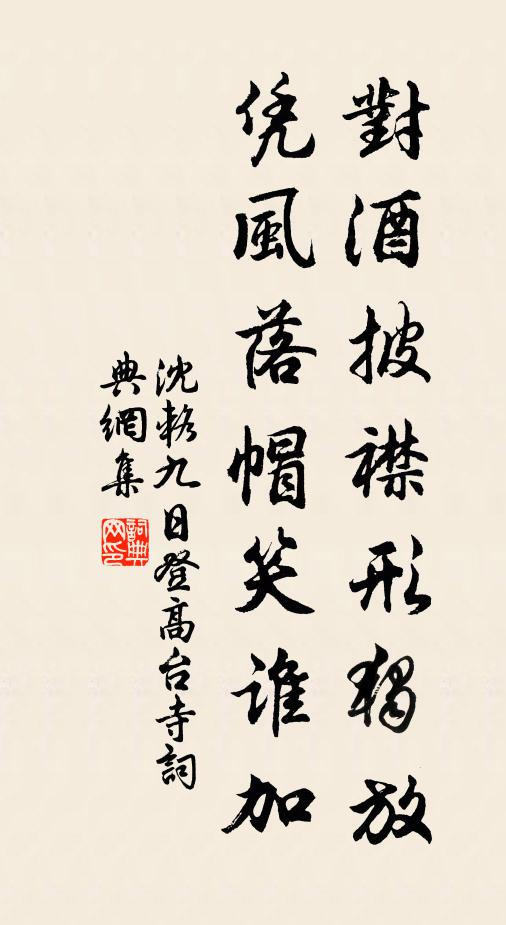 對酒披襟形獨放
凭風落帽笑誰加
沈輅九日登高台寺詞
典網集
詞典
网印